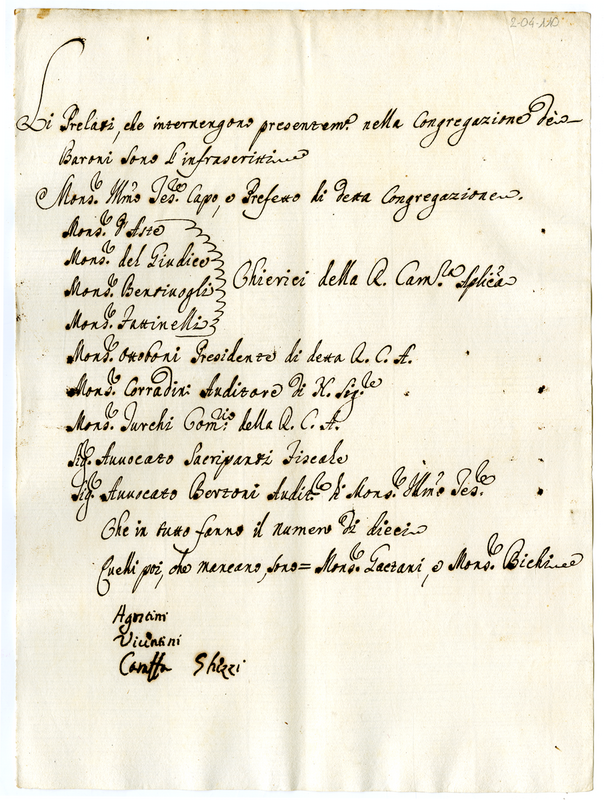 2-04-110
Li Prelati, che intervengono presentem.e nella Congregazione de'
Baroni sono l'infrascritti
Mons.r Ill.mo Tes.re Capo, e Prefetto di detta Congregazione.
Mons.r d'Aste
Mons.r del Giudice
Mons.r Bentivogli
Mons.r Fattinelli
Chierici della R. Cam.ra Aplica
Mons.r Ottoboni Presidente di detta R. C. A.
Mons.r Corradini Auditore di N. Sig.re
Mons.r Turchi Com.rio della R. C. A.
Sig.r Avvocato Sacripanti Fiscale
Sig.r Avvocato Bertoni Audit.re di Mons.r Ill.mo Tes.re
Che in tutto fanno il numero di dieci
Quelli poi, che mancano, sono = Mons.r Gaetani, e Mons.r Bichi
Agostini
Vicentini
Caraffa Ghizzi